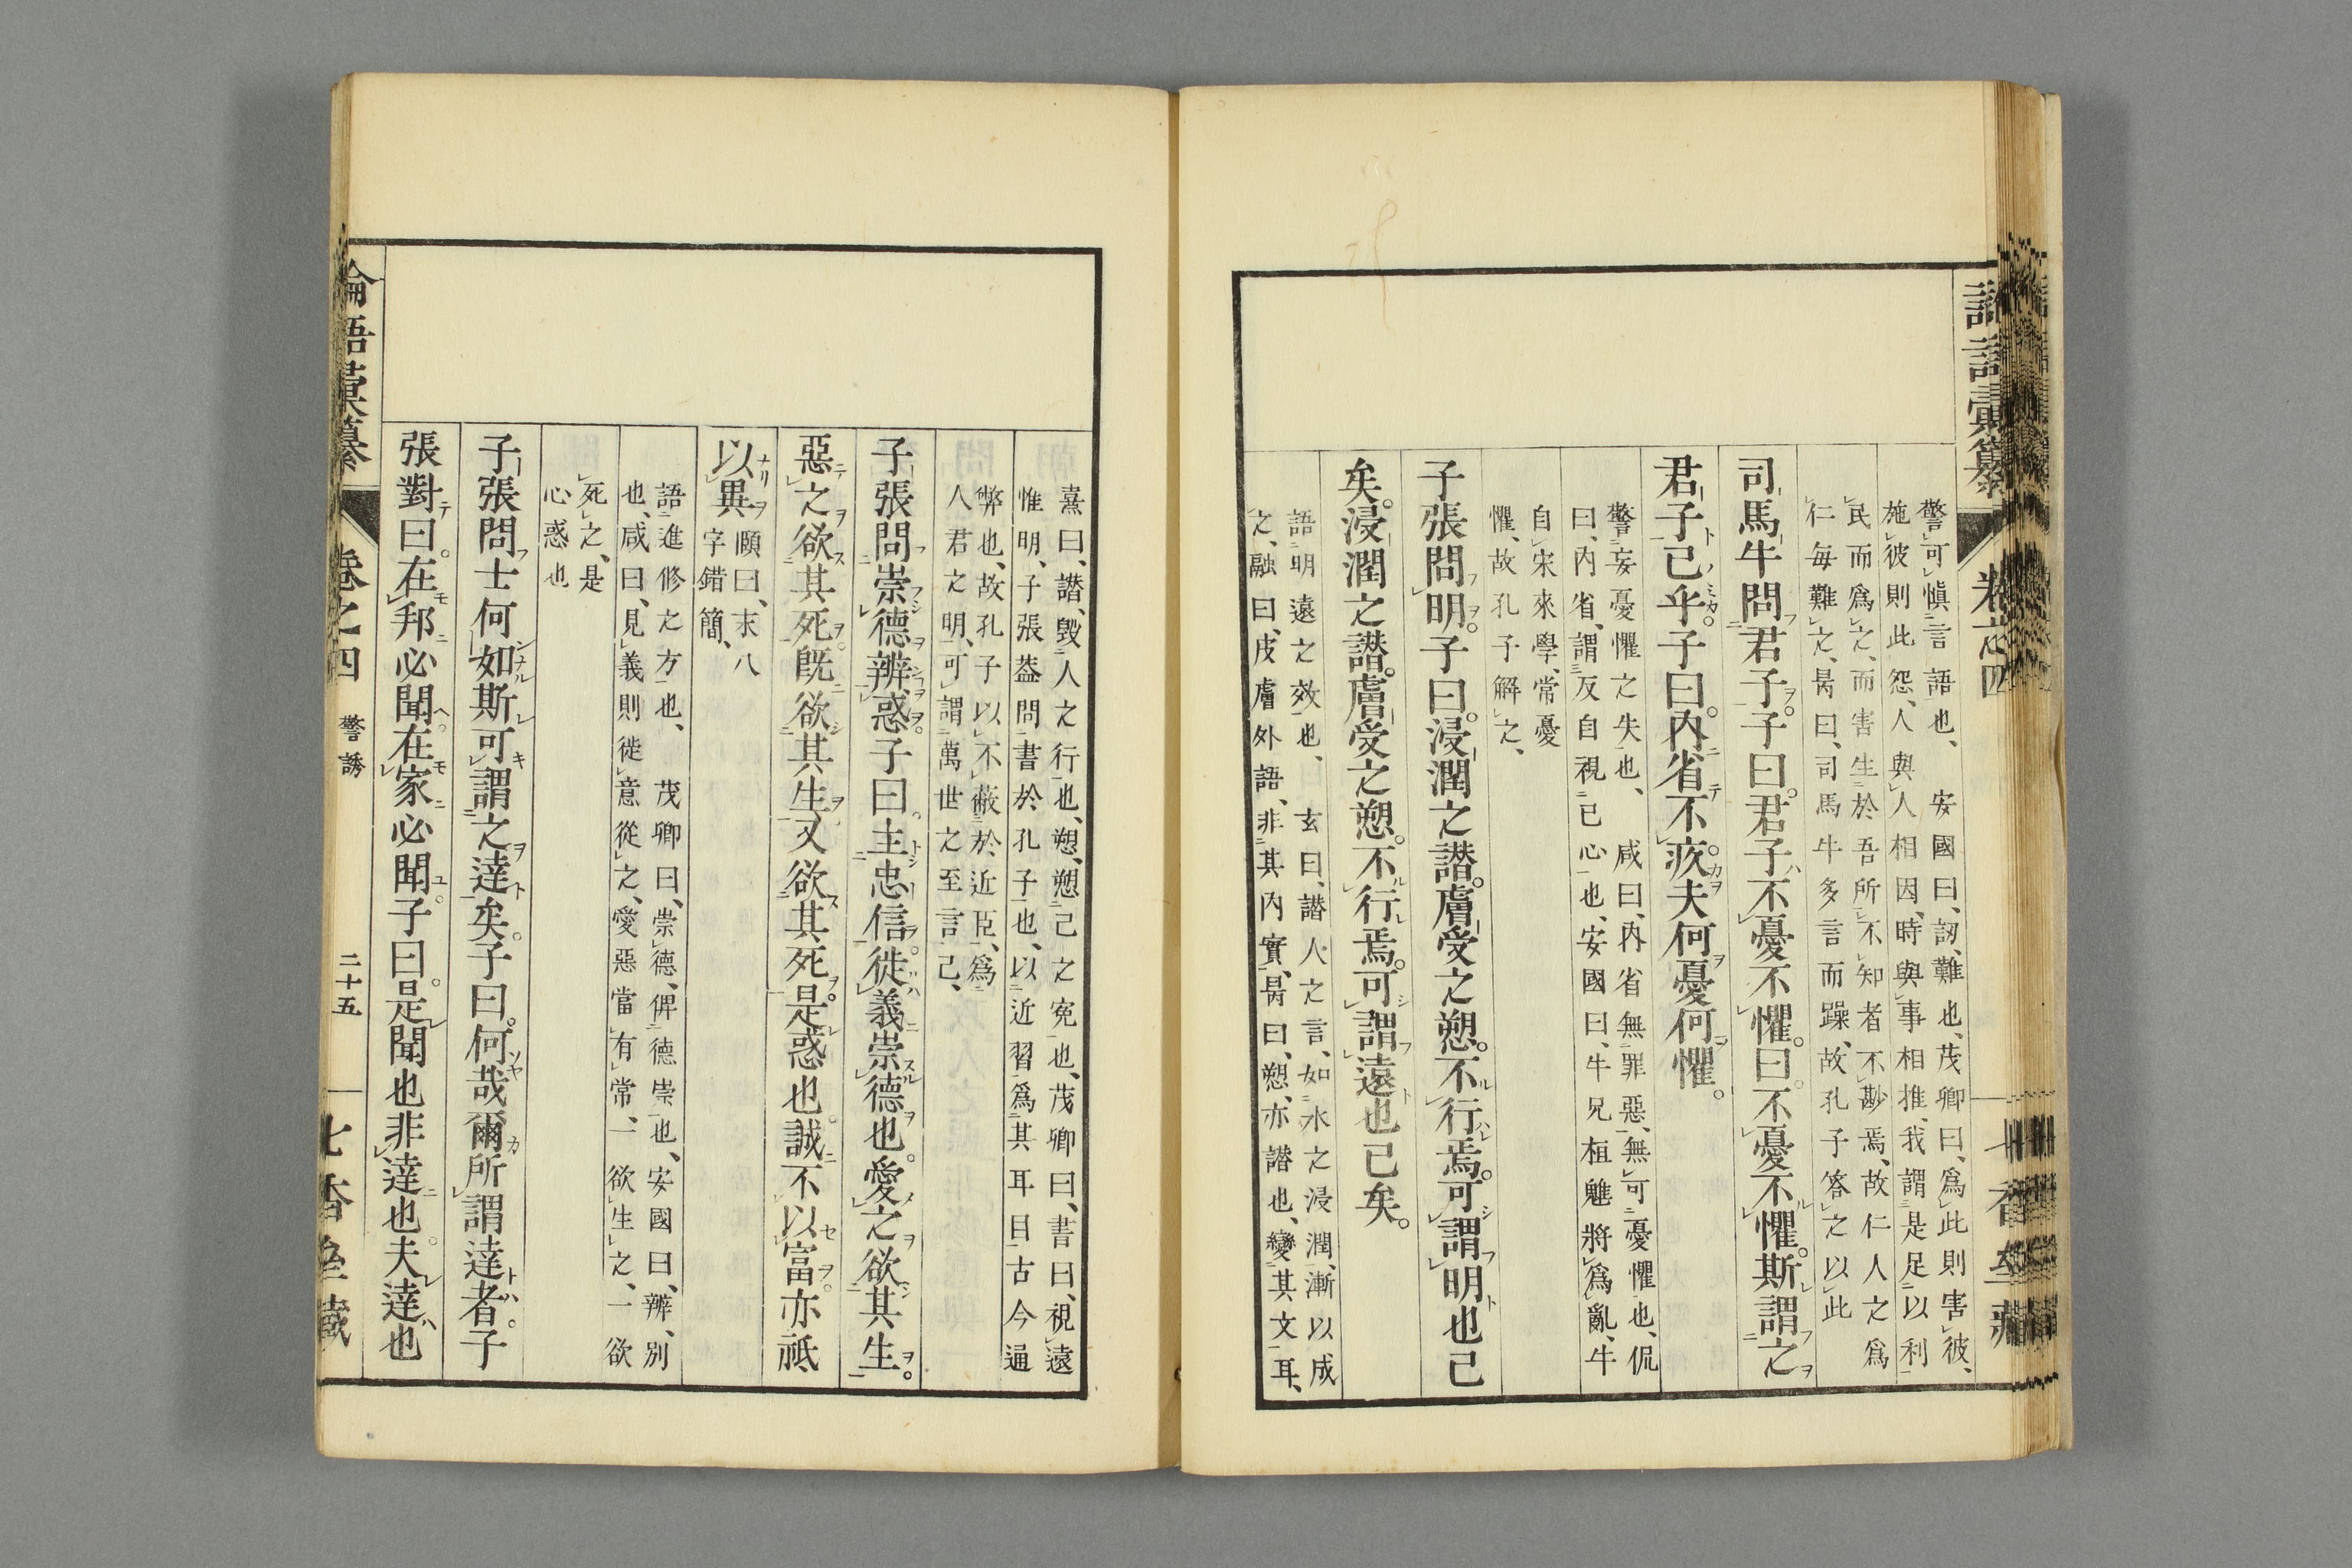 警可愼言語也、安國曰、訒、難也、茂卿曰、爲此則害彼、
施彼則此怨、人與人相因、時與事相推、我謂是足以利
民而爲之、而害生於吾所不知者不尠焉、故仁人之爲
仁每難之、昺曰、司馬牛多言而躁、故孔子答之以此
司馬牛問君子。子曰。君子不憂不懼。曰。不憂不懼。斯謂之
君子已乎。子曰。内省不疚。夫何憂何懼。
警妄憂懼之失也、咸曰、内省無罪惡、無可憂懼也、侃
曰、内省、謂反自視己心也、安國曰、牛兄桓魋將爲亂、牛
自宋來學、常憂
懼、故孔子解之、
子張問明。子曰。浸潤之譖。膚受之愬。不行焉。可謂明也已
矣。浸潤之譖。膚受之愬。不行焉。可謂遠也已矣。
語明遠之效也、玄曰、譖人之言、如水之浸潤、漸以成
之、融曰、皮膚外語、非其内實、昺曰、愬、亦譖也、變其文耳、
熹曰、譖、毀人之行也、愬、愬己之寃也、茂卿曰、書曰、視遠
惟明、子張葢問書於孔子也、以近習爲其耳目古今通
弊也、故孔子以不蔽於近臣、爲
人君之明、可謂萬世之至言已、
子張問崇德辨惑。子曰。主忠信。徙義崇德也。愛之欲其生。
惡之欲其死。旣欲其生。又欲其死。是惑也。誠不以富。亦祗
以異
頤曰、末八
字錯簡、
語進修之方也、茂卿曰、崇德、俾德崇也、安國曰、辨、別
也、咸曰、見義則徙意從之、愛惡當有常、一欲生之、一欲
死之、是
心惑也
子張問士何如斯可謂之達矣。子曰。何哉爾所謂達者。子
張對曰。在邦必聞。在家必聞。子曰。是聞也非達也。夫達也
論語彙纂
卷之四
警誘
二十五